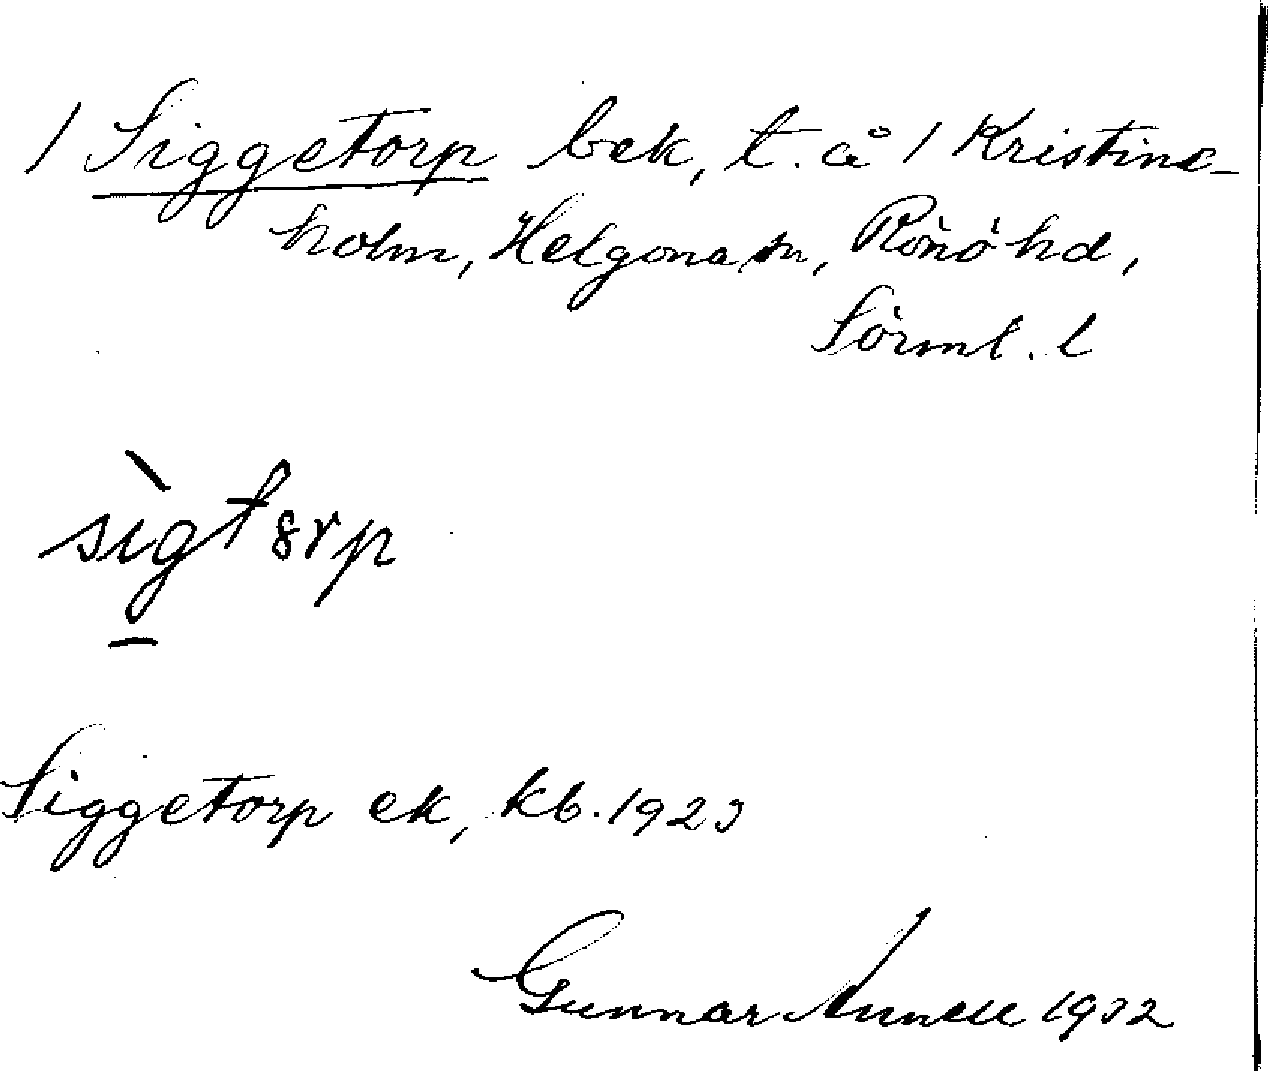 / Siggetorp bek, t. å / Kristine-
holm, Helgona sn, Rönö hd,
Sörml. l
sìgtȣrp
Siggetorp ek, kb. 1923
Gunnar Annell 1932